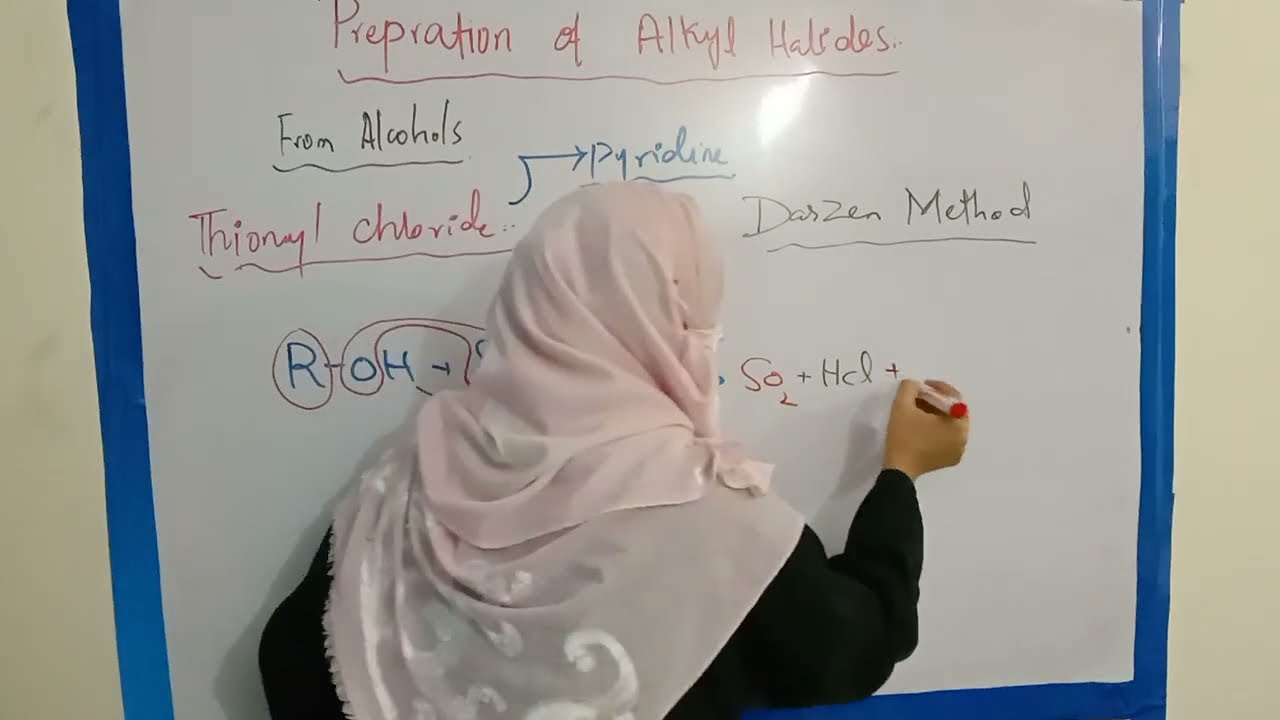 Prepration of Alkyl Halides..
From Alcohols
pyridine
Thionyl chloride..
Darzen Method
R-OH +
SO2 + HCl +